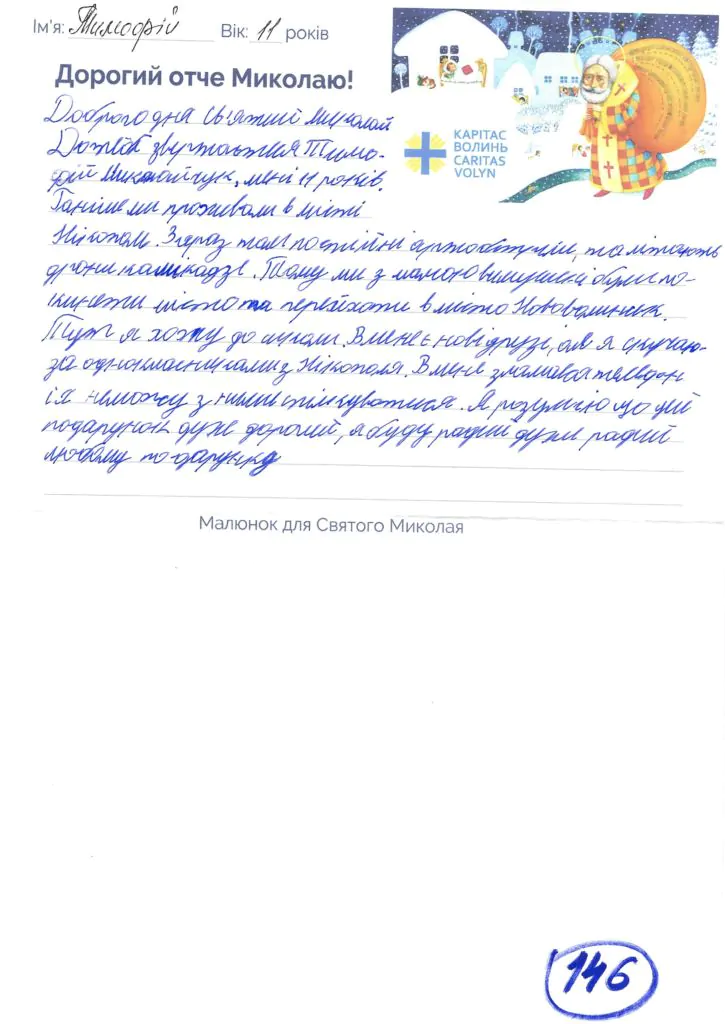 Ім'я: Тимофій Вік: 11 років
Дорогий отче Миколаю!
КАРІТАС
ВОЛИНЬ
CARITAS
VOLYN
Доброго дна святий миколай
До тебе звертається Тимо-
фій Миколайчук, мені 11 років.
Раніше ми проживали в місті
Нікополі. Зараз там постійні артобстріли, та літають
дрони камікадзе. Тому ми з мамою вимушені були по-
кинути місто та переїхати в місто Нововолинськ.
Тут я хожу до школи. В мене є нові друзі, але я скучаю-
за однокласниками з Нікополя. В мене зламався телефон
і я неможу з ними спілкуватися. Я розумію що цей
подарунок дуже дорогий, я буду радий дуже радий
любому подарунку
Малюнок для Святого Миколая
146